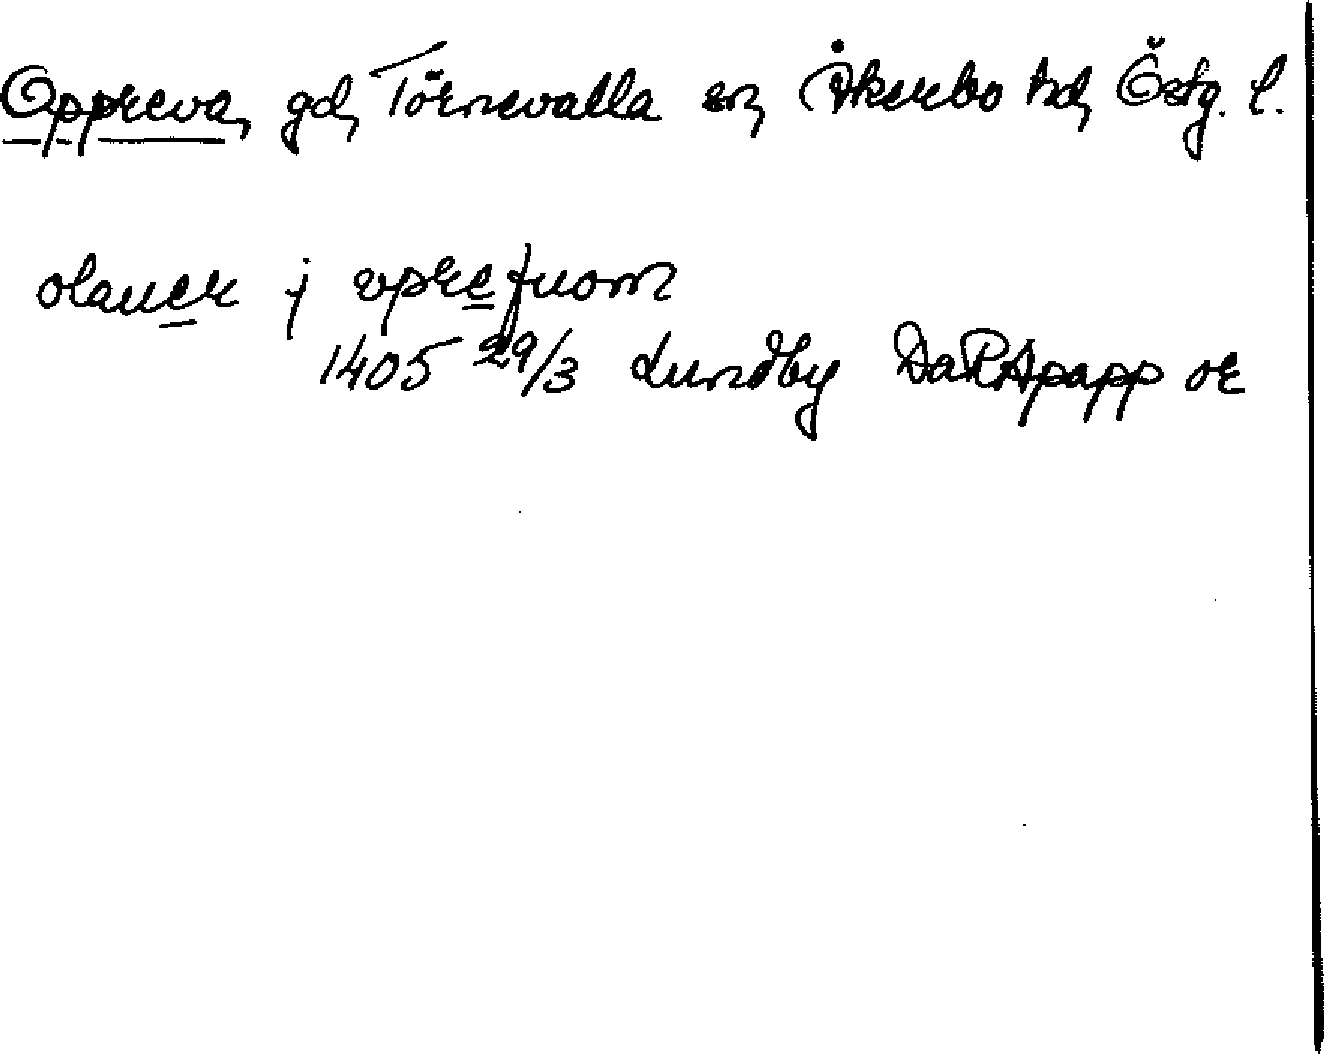 Oppreva, gd, Törnevalla sn, Åkerbo hd, Östg. l.
olauer j vprefuom
1405 29/3 Lundby DaRApapp or